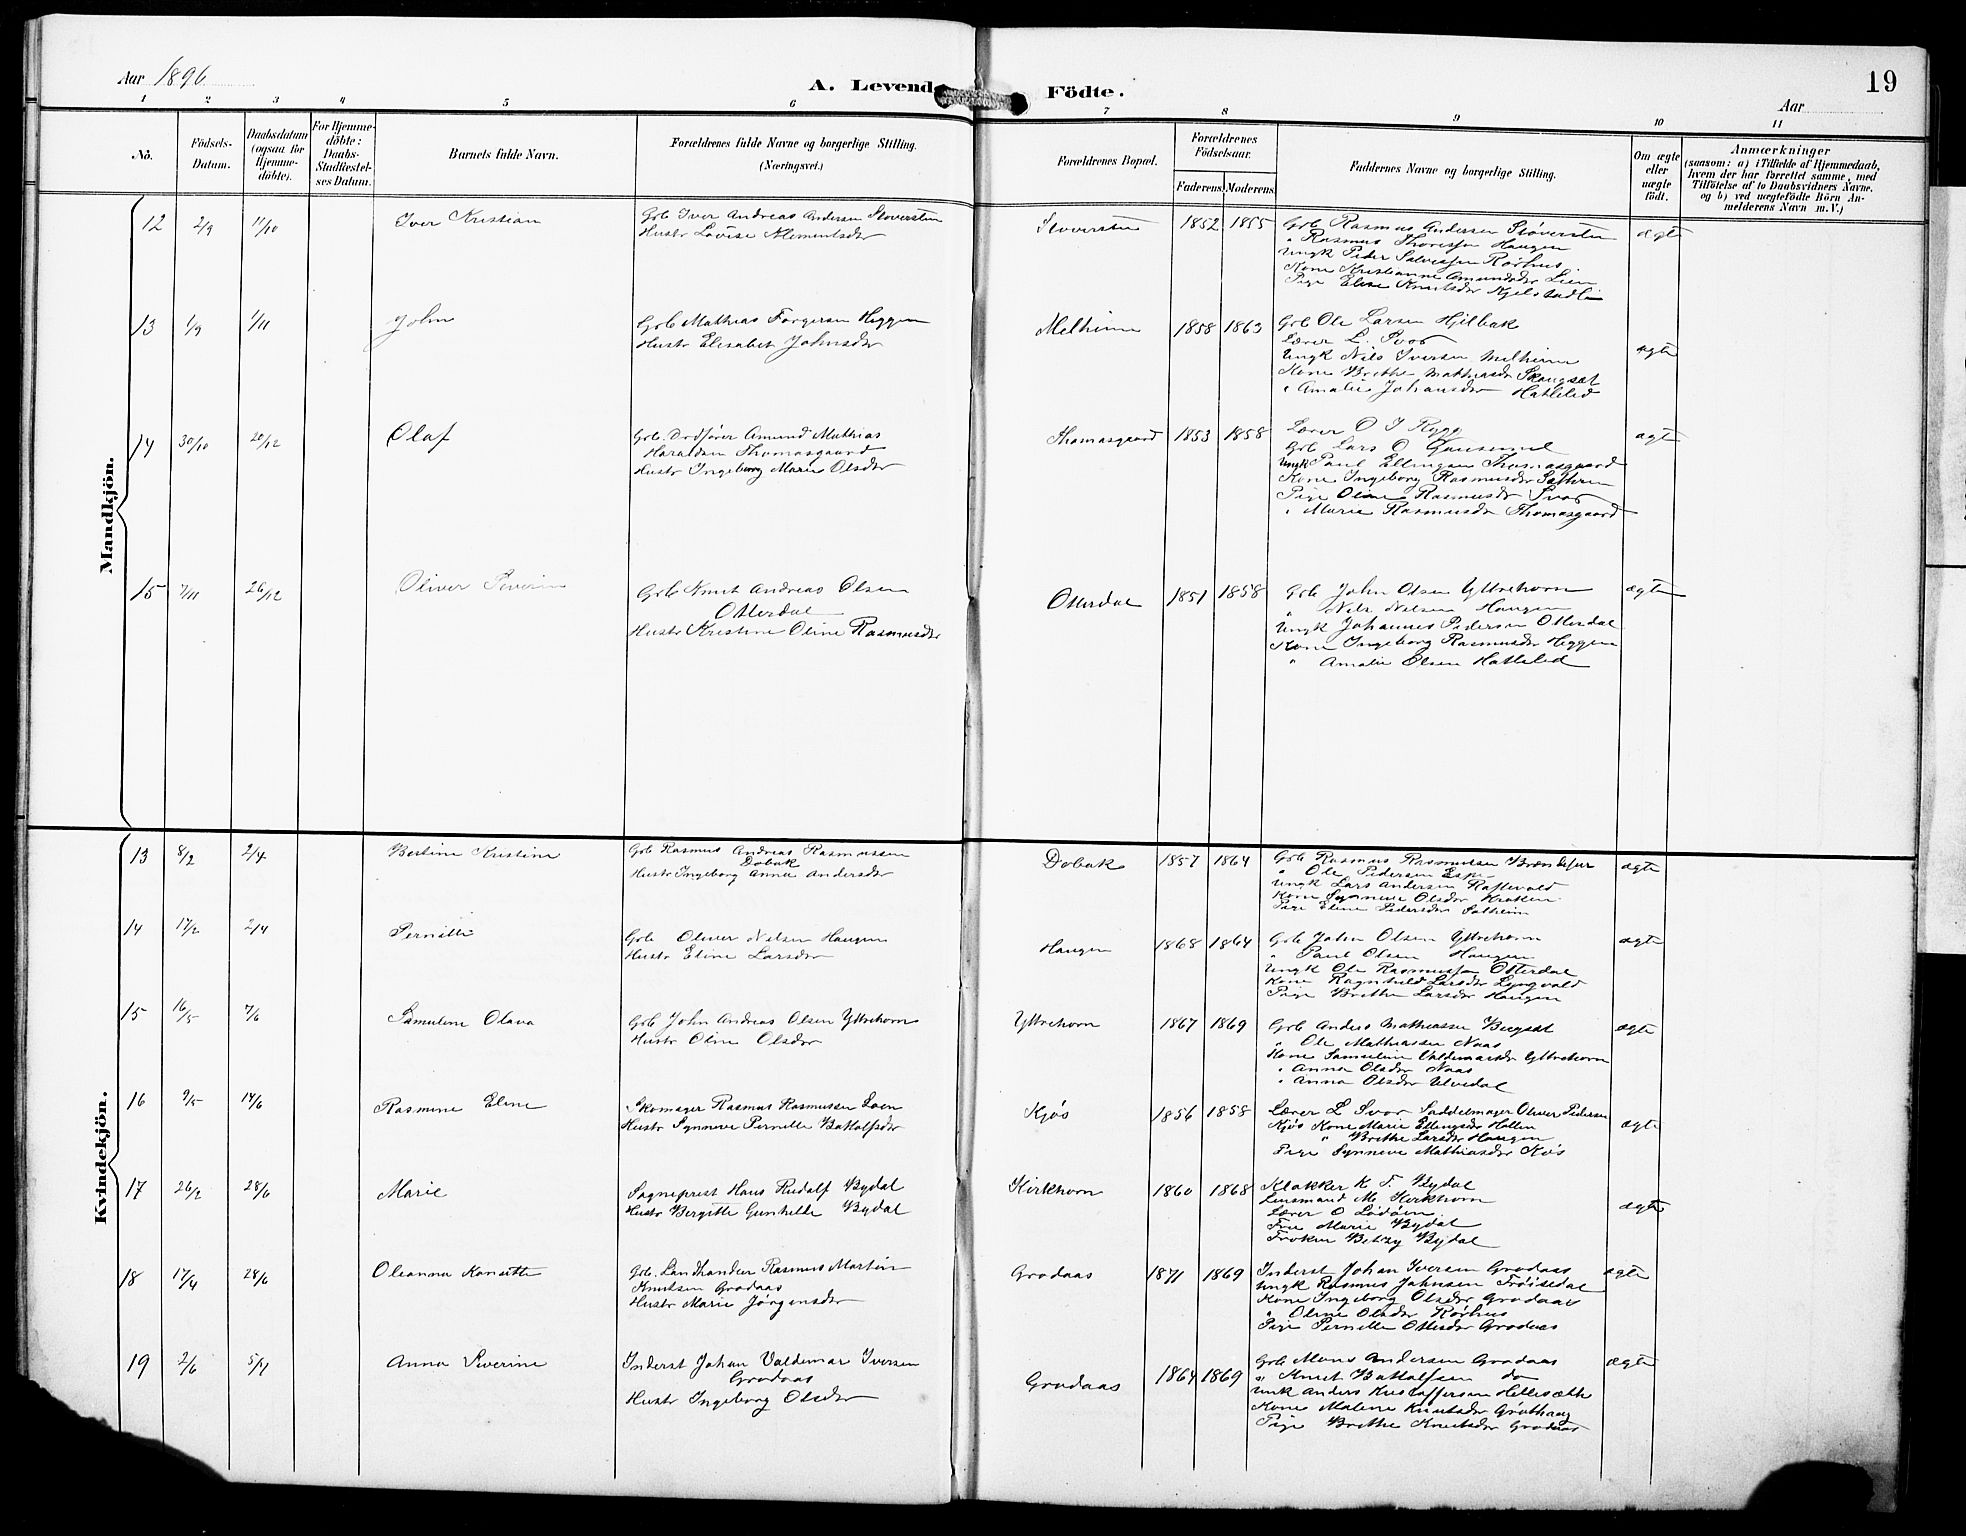 Aar 1896
A. Levende Födte.
19
Aar
1 2 3 4 5 6 7 8 9 10 11
No.
Födsels-Datum.
Daabsdatum (ogsaa for Hjemme-döbte).
For Hjemme-döbte: Daabs-Stadfæstelses Datum.
Barnets fulde Navn.
Forældrenes fulde Navne og borgerlige Stilling.
(Næringsvei.)
Forældrenes Bopæl.
Forældrenes Födselsaar.
Faderens. Moderens.
Faddernes Navne og borgerlige Stilling.
Om ægte eller uægte födt.
Anmærkninger
(saasom: a) i Tilfælde af Hjemmedaab, hvem der har forrettet samme, med Tilföielse af to Daabsvidners Navne, og b) ved uægtefödte Börn Anmelderens Navn m. V.)
Mandkjön.
12 2/9 11/10 Iver Kristian
Grb Iver Andreas Andersen Stoversten
Hustr Lovise Klementsdr
Stoversten 1852 1855
Grb Rasmus Andersen Stöversten
" Rasmus Thoresen Haugen
Ungk Peder Rørhus
Kone Kristianne Amundsdr Lien
Pige Eline Knutsdr Kjelstadli
ægte
13 1/9 1/11 John
Grb Mathias Torgersen Heggen
Hustr Elisabet Johnsdr
Melheim 1858 1863
Grb Ole Larsen Hjelbak
Lærer L. Svor
Ungk Nils Iversen Melheim
Kone Brethe Mathiasdr Skaugset
" Amalie Johansdr Hatleled
ægte
14 30/10 20/12 Olaf
Grb. Amund Mathias
Haraldsen Thomasgaard
Hustr Ingeborg Marie Olsdr
Thomasgaard 1853 1858
Lærer O J Rygg
Grb Lars O Gausemel
Ungk Paul Ellingsen Thomasgaard
Kone Ingeborg Rasmusdr Sætren
Pige Oline Rasmusdr Svor
" Marie Rasmusdr Thomasgaard
ægte
15 7/11 26/12 Oliver Severin
Grb Knut Andreas Olsen
Otterdal
Hustr Kristine Oline Rasmusdr
Otterdal 1851 1858
Grb John Olsen Yttrehorn
" Nils Nilsen Haugen
Ungk Johannes Pedersen Otterdal
Kone Ingeborg Rasmusdr Heggen
" Amalie Olsen Hatleled
ægte
Kvindekjön.
13 8/2 2/4 Bertine Kristine
Grb Rasmus Andreas Rasmussen
Dobak
Hustr Ingeborg Anna Andersdr
Dobak 1857 1864
Grb Rasmus Rasmussen
" Ole Pedersen Espe
Ungk Lars Andersen Raftevold
Kone Synneve Olsdr Kroken
Pige Eline Pedersdr Solheim
ægte
14 17/2 2/4 Pernille
Grb Oliver Nilsen Haugen
Hustr Eline Larsdr
Haugen 1868 1864
Grb John Olsen Yttrehorn
" Paul Olsen Haugen
Ungk Ole Rasmussen Otterdal
Kone Ragnhild Larsdr Lyngvold
Pige Brethe Larsdr Haugen
ægte
15 16/5 7/6 Samuline Olava
Grb John Andreas Olsen Yttrehorn
Hustr Oline Olsdr
Yttrehorn 1867 1869
Grb Anders Mathiassen Bergset
" Ole Mathiassen Naas
Kone Samueline Valdemarsdr Yttrehorn
" Anna Olsdr Naas
" Anna Olsdr Ulvedal
ægte
16 9/5 14/6 Rasmine Eline
Skomager Rasmus Rasmussen Loen
Hustr Synneve Pernille Battolfsdr
Kjös 1856 1858
Lærer L Svor Saddelmager Oliver Pedersen
Kjös Kone Marie Ellingsdr Hellen
" Brethe Larsdr Haugen
Pige Synneve Mathiasdr Kjös
ægte
17 26/2 28/6 Marie
Sogneprest Hans Rudolf Bydal
Hustr Bergitte Gunhilde Bydal
Kirkhorn 1860 1868
Klokker K F. Bydal
Lensmand M. Kirkhorn
Lærer O Lödöen
Fru Marie Bydal
Fröken Betzy Bydal
ægte
18 17/4 28/6 Oleanna Kanutte
Grb. Landhandler Rasmus Martin
Knutsen Grodaas
Hustr Marie Jörgensdr
Grodaas 1871 1869
Inderst Johan Iversen Grodaas
Ungk Rasmus Johnsen Fröisedal
Kone Ingeborg Olsdr Grodaas
" Oline Olsdr Rörhus
Pige Pernille Ottesdr Grodaas
ægte
19 2/6 5/7 Anna Severine
Inderst Johan Valdemar Iversen
Grodaas
Hustr Ingeborg Olsdr
Grodaas 1864 1869
Grb Mons Andersen Grodaas
" Knut Battolfsen do
Ungk Anders Kristoffersen Hellesæthe
Kone Malene Knutsdr Gröthaug
Pige Brethe Knutsdr Grodaas
ægte